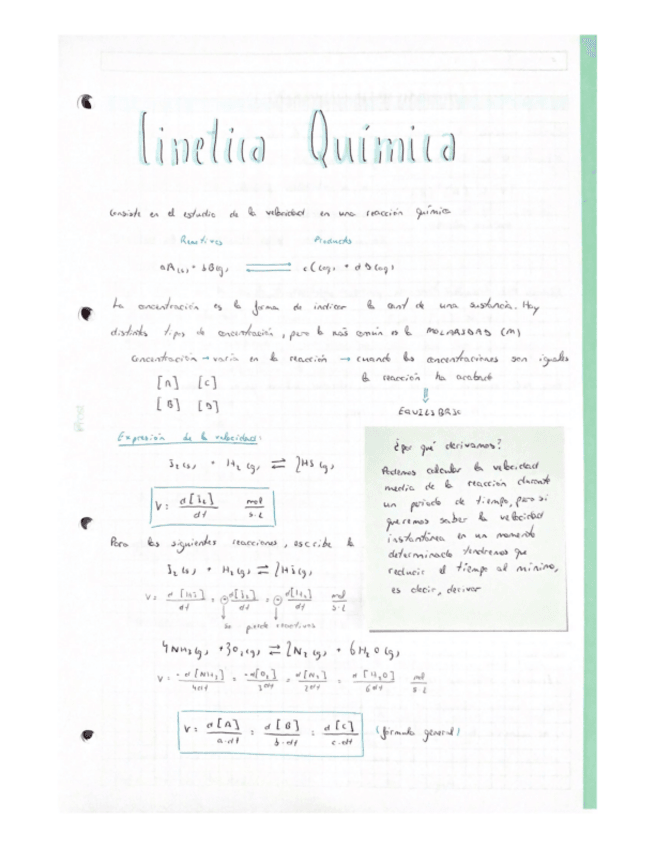 Cinetica Química
Consiste en el estudio de la velocidad en una reacción química
Reactivos Producto
aA(g) + bB(g) ⇌ cC(g) + dD(g)
La concentración es la forma de indicar la cant de una sustancia. Hay
distintos tipos de concentración, pero la más común es la MOLARIDAD (M)
Concentración → varía en la reacción → cuando las concentraciones son iguales
la reacción ha acabado
[A] [C]
[B] [D]
⇓
EQUILIBRIO
Expresión de la velocidad:
I₂(g) + H₂(g) ⇌ 2HI(g)
V = d[I₂]/dt mol/s·L
¿por qué derivamos?
Podemos calcular la velocidad
media de la reacción durante
un periodo de tiempo, pero si
queremos saber la velocidad
instantánea en un momento
determinado tendremos que
reducir el tiempo al mínimo,
es decir, derivar
Para las siguientes reacciones, escribe la
I₂(g) + H₂(g) ⇌ 2HI(g)
V = d[HI]/dt = -d[I₂]/dt = -d[H₂]/dt mol/s·L
se pierde reactivos
4NH₃(g) + 3O₂(g) ⇌ 2N₂(g) + 6H₂O(g)
V = -d[NH₃]/4dt = -d[O₂]/3dt = d[N₂]/2dt = d[H₂O]/6dt mol/s·L
V = d[A]/a·dt = d[B]/b·dt = d[C]/c·dt (fórmula general)